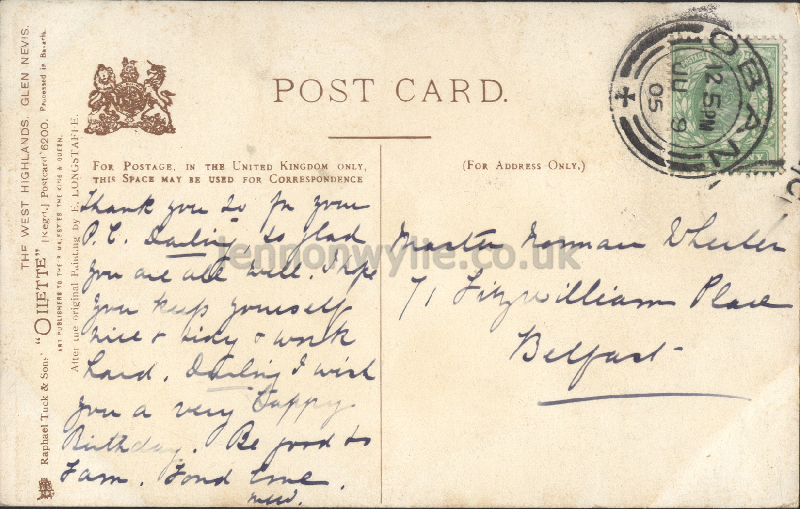 THE WEST HIGHLANDS. GLEN NEVIS.
Raphael Tuck & Sons' "OILETTE" [Regd.] Postcard 6200. Processed in Bavaria.
ART PUBLISHERS TO THEIR MAJESTIES THE KING & QUEEN.
After the original Painting by E. LONGSTAFFE.
POST CARD.
FOR POSTAGE, IN THE UNITED KINGDOM ONLY,
THIS SPACE MAY BE USED FOR CORRESPONDENCE
(FOR ADDRESS ONLY.)
OBAN
12.5PM
JU 9
05
Thank you so for your
P.C. Darling so glad
you are all well. I hope
you keep yourself
nice & tidy & work
hard. Darling I wish
you a very happy
Birthday. Be good to
Fam. Fond love.
Master Norman Wheeler
71 Fitzwilliam Place
Belfast
lennonwylie.co.uk